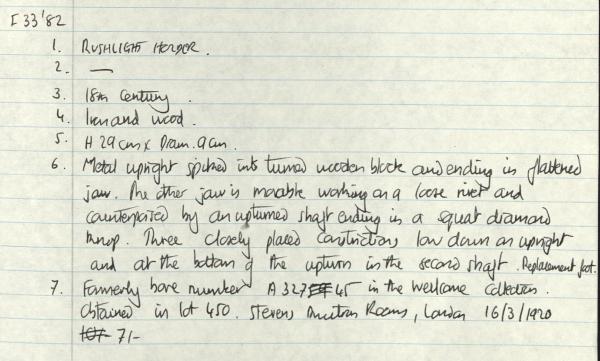 I 33'82
1. RUSHLIGHT HOLDER.
2. —
3. 18th Century.
4. Iron and wood.
5. H 29cms x Diam. 9cm.
6. Metal upright spiked into turned wooden block and ending in flattened
jaw. The other jaw is movable working on a loose rivet and
counterpoised by an upturned shaft ending in a squat diamond
knop. Three closely placed constrictions low down on upright
and at the bottom of the upturn in the second shaft. Replacement foot.
7. Formerly bore number A 32745 in the Wellcome Collection.
Obtained in lot 450. Stevens Auction Rooms, London 16/3/1920
71-